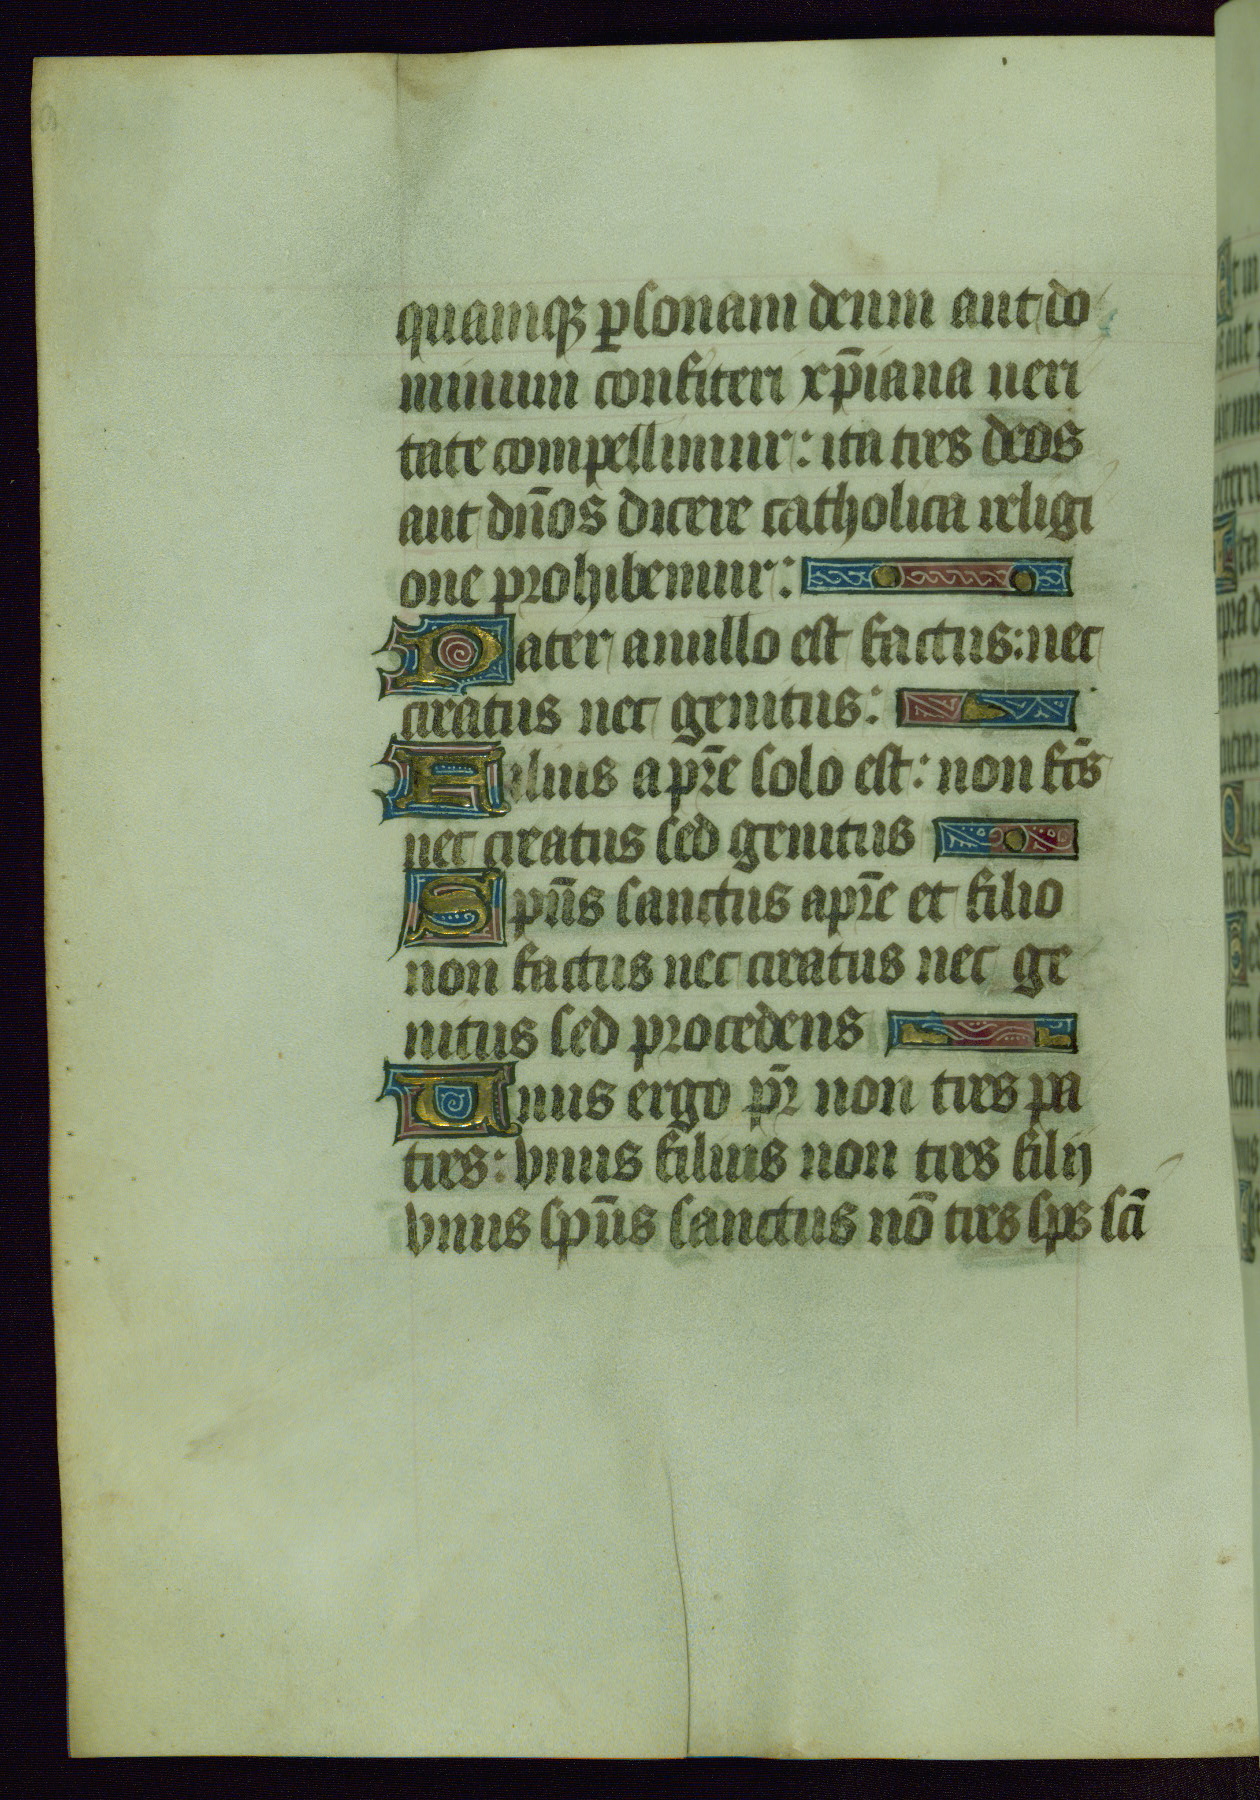 quamqꝫ ꝑsonam deum aut do
minum confiteri xp̄iana ueri
tate compellimur: ita tres deos
aut dn̄os dicere catholica religi
one prohibemur:
Pater a nullo est factus: nec
creatus nec genitus:
Filius a pr̄e solo est: non fc̄s
nec creatus sed genitus
Spūs sanctus a pr̄e et filio
non factus nec creatus nec ge
nitus sed procedens
Unus ergo pr̄ non tres pa
tres: vnus filius non tres filij
vnus spūs sanctus nō tres sps sc̄i